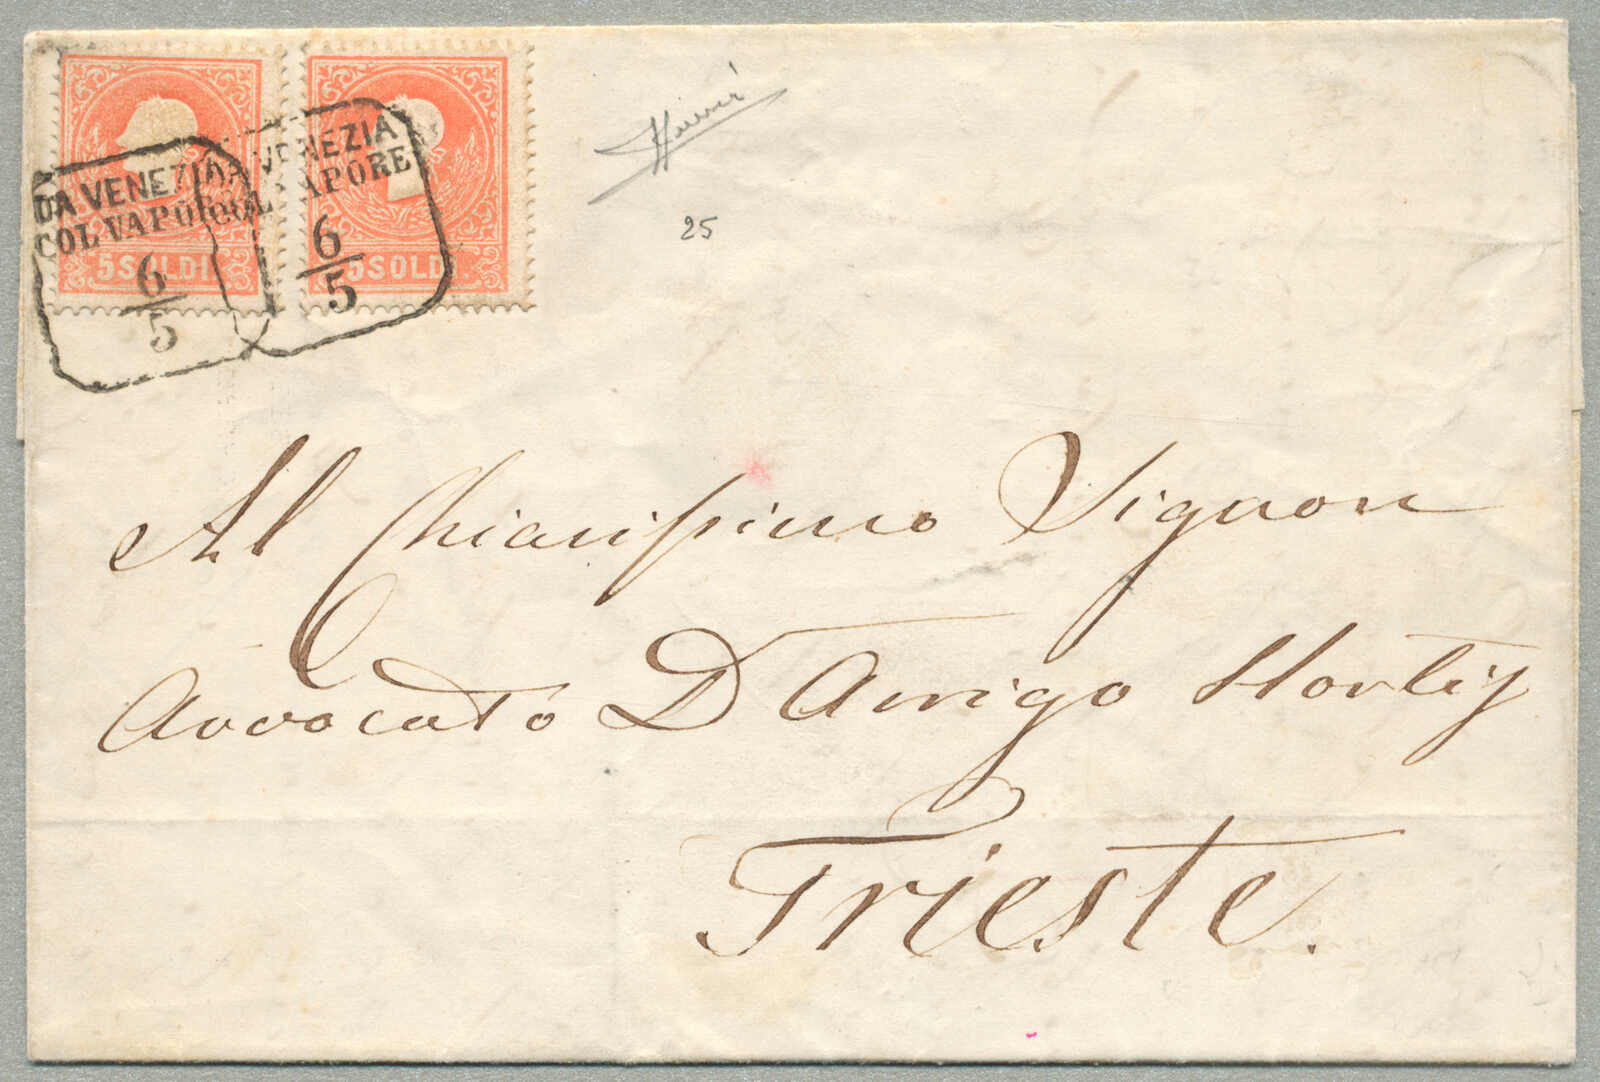 DA VENEZIA
COL VAPORE
6
5
DA VENEZIA
COL VAPORE
6
5
5 SOLDI
5 SOLDI.
25
Al Chiarissimo Signor
Avvocato Dr Arrigo Hortis
Trieste.